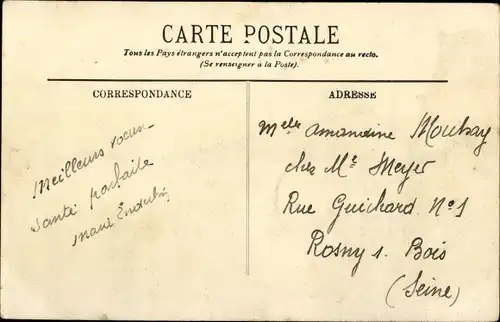 CARTE POSTALE
Tous les Pays étrangers n'acceptent pas la Correspondance au recto.
(Se renseigner à la Poste).
CORRESPONDANCE
Meilleurs vœux
Santé parfaite
Marie
ADRESSE
Melle Amandine
chez Mr Meyer
Rue Guichard No 1
Rosny s. Bois
(Seine)